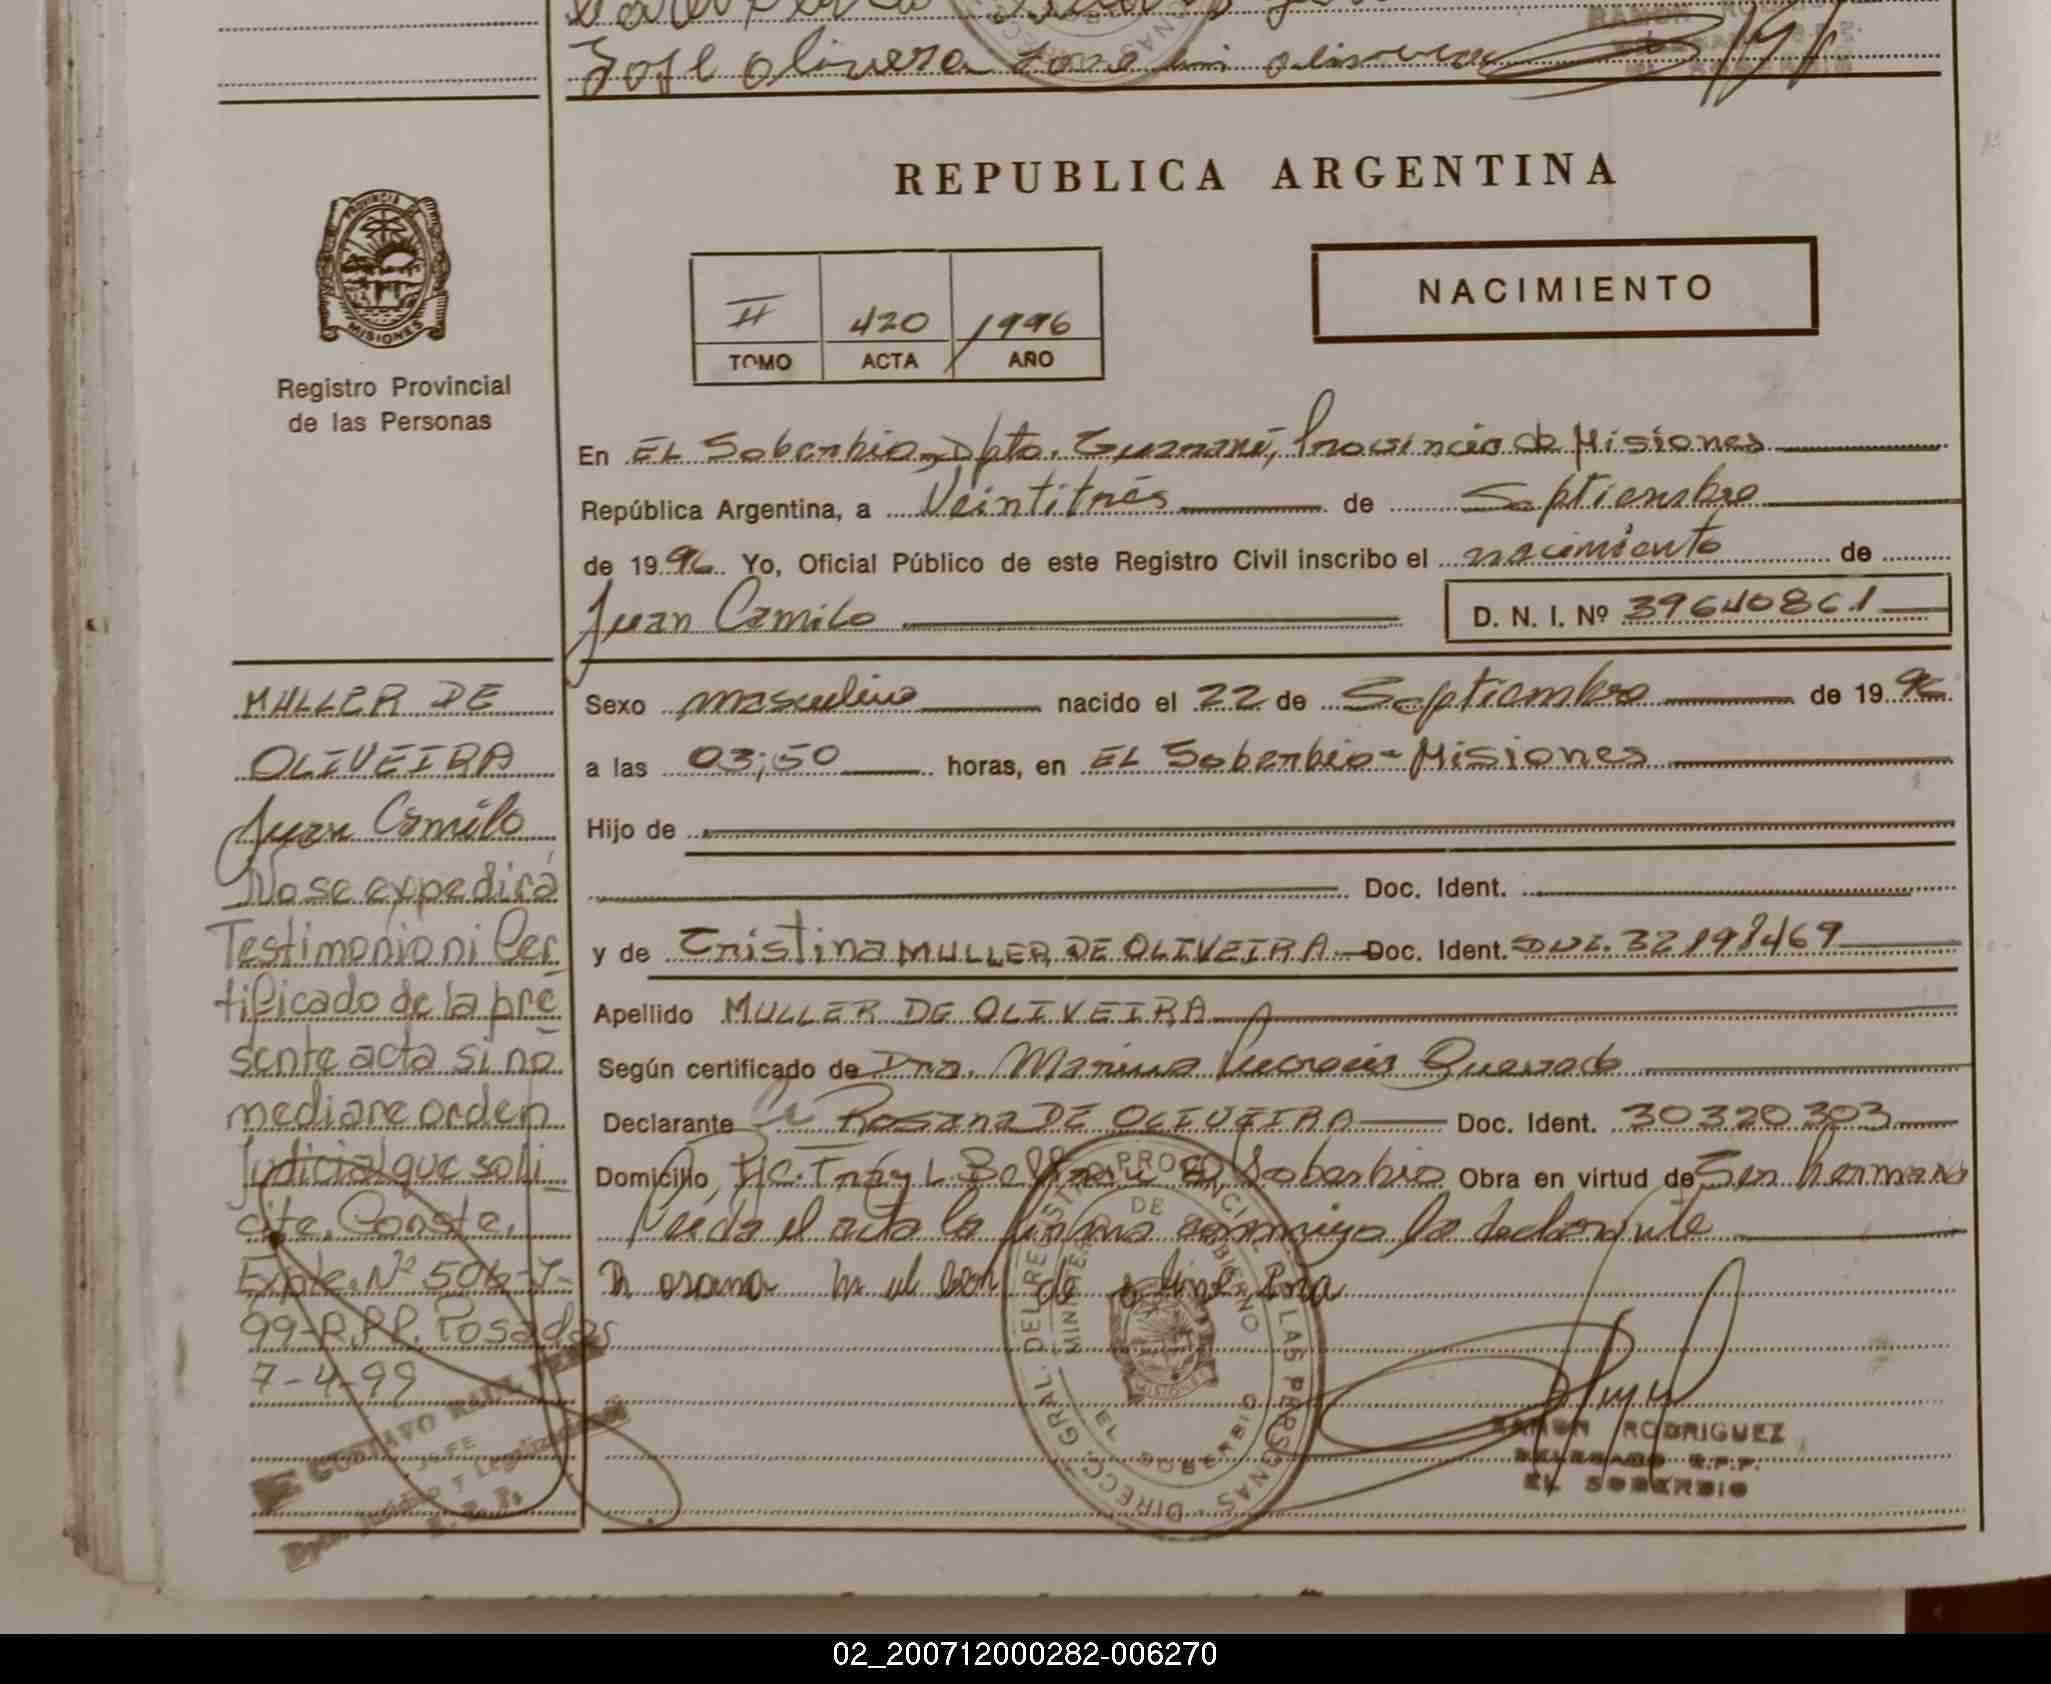 José olivera José luis olivera
REPUBLICA ARGENTINA
PROVINCIA DE
MISIONES
Registro Provincial
de las Personas
NACIMIENTO
II 420 1996
TOMO ACTA AÑO
En EL Soberbio, Dpto. Guaraní, Provincia de Misiones
República Argentina, a Veintitrés de Septiembre
de 1996 Yo, Oficial Público de este Registro Civil inscribo el nacimiento de
Juan Camilo D. N. I. Nº 39640861
Sexo masculino nacido el 22 de Septiembre de 1996
a las 03;50 horas, en EL Soberbio - Misiones
Hijo de
Doc. Ident.
y de Cristina MULLER DE OLIVEIRA Doc. Ident. DNI. 32198469
Apellido MULLER DE OLIVEIRA
Según certificado de Dra. Marina Lucrecia Quevedo
Declarante Rosana DE OLIVEIRA Doc. Ident. 30320303
Domicilio Fray L. Beltrán El Soberbio Obra en virtud de Ser hermana
Leida el acta la firma conmigo la declarante
Rosana Muller de oliveira
MULLER DE
OLIVEIRA
Juan Camilo
No se expedirá
Testimonio ni Cer
tificado de la pre
sente acta si no
mediare orden
Judicial que soli
cite. Conste.
Expte. Nº 506-7-
99-R.P.P. Posadas
7-4-99
GUSTAVO RAUL
JEFE
Dpto. Jurídico y Legalizaciones
R. P. P.
DIRECC. GRAL. DEL REGISTRO PROVINCIAL DE LAS PERSONAS
MINISTERIO DE GOBIERNO
MISIONES
EL SOBERBIO
RAMON RODRIGUEZ
DELEGADO R.P.P.
EL SOBERBIO
02_200712000282-006270